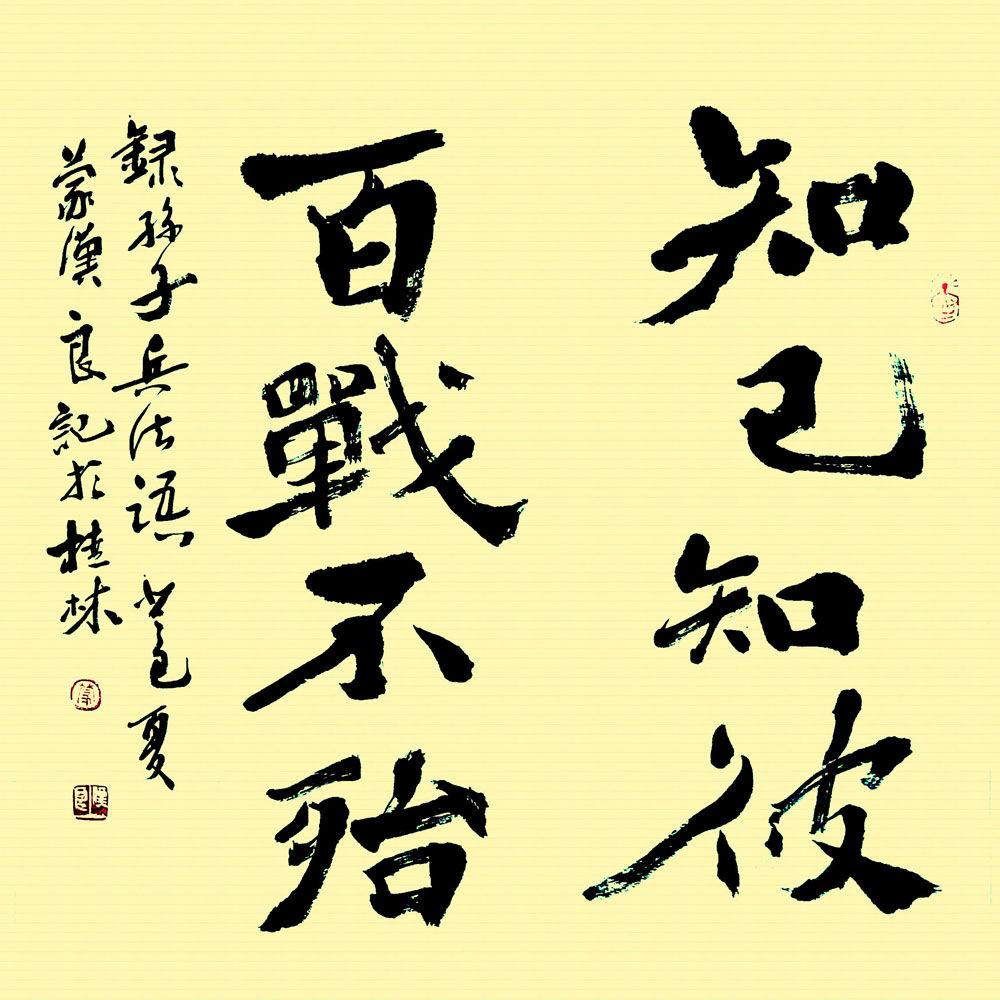 知己知彼
百戰不殆
錄孫子兵法語 夏
蒙漢良記於桂林